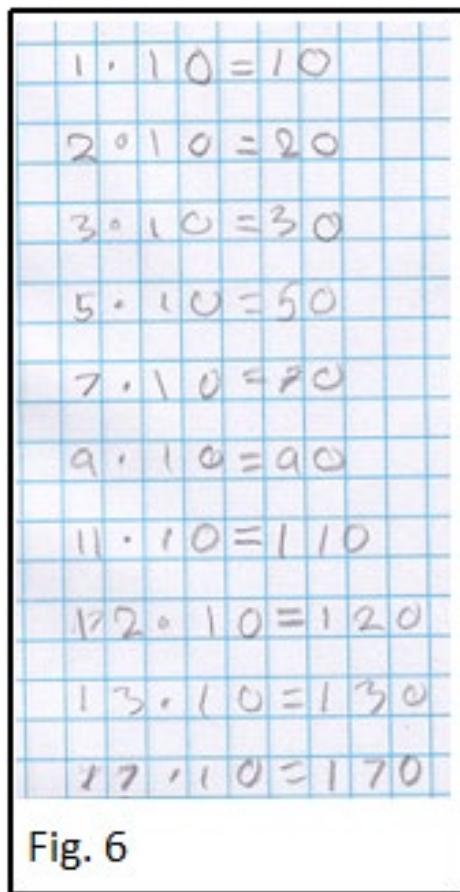 1 · 10 = 10
2 · 10 = 20
3 · 10 = 30
5 · 10 = 50
7 · 10 = 70
9 · 10 = 90
11 · 10 = 110
12 · 10 = 120
13 · 10 = 130
17 · 10 = 170
Fig. 6